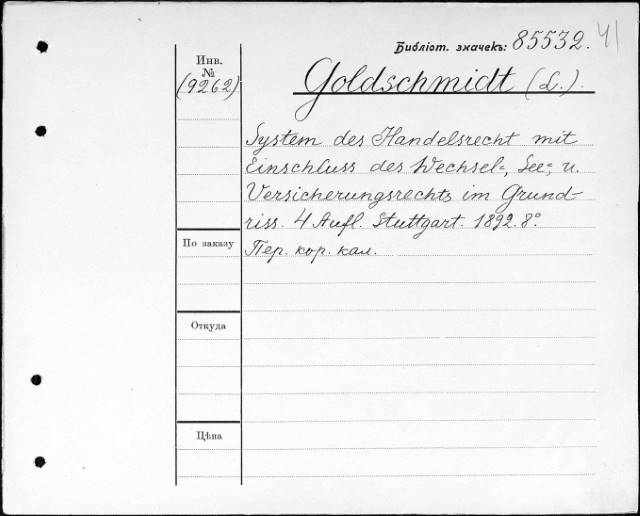 Библіот. значекъ: 85532. 41
Инв.
№
(9262)
Goldschmidt (L.).
System des Handelsrecht mit
Einschluss des Wechsel-, See-, u.
Versicherungsrechts im Grund-
riss. 4 Aufl. Stuttgart. 1892. 8°.
По заказу
Пер. кор. кал.
Откуда
Цѣна